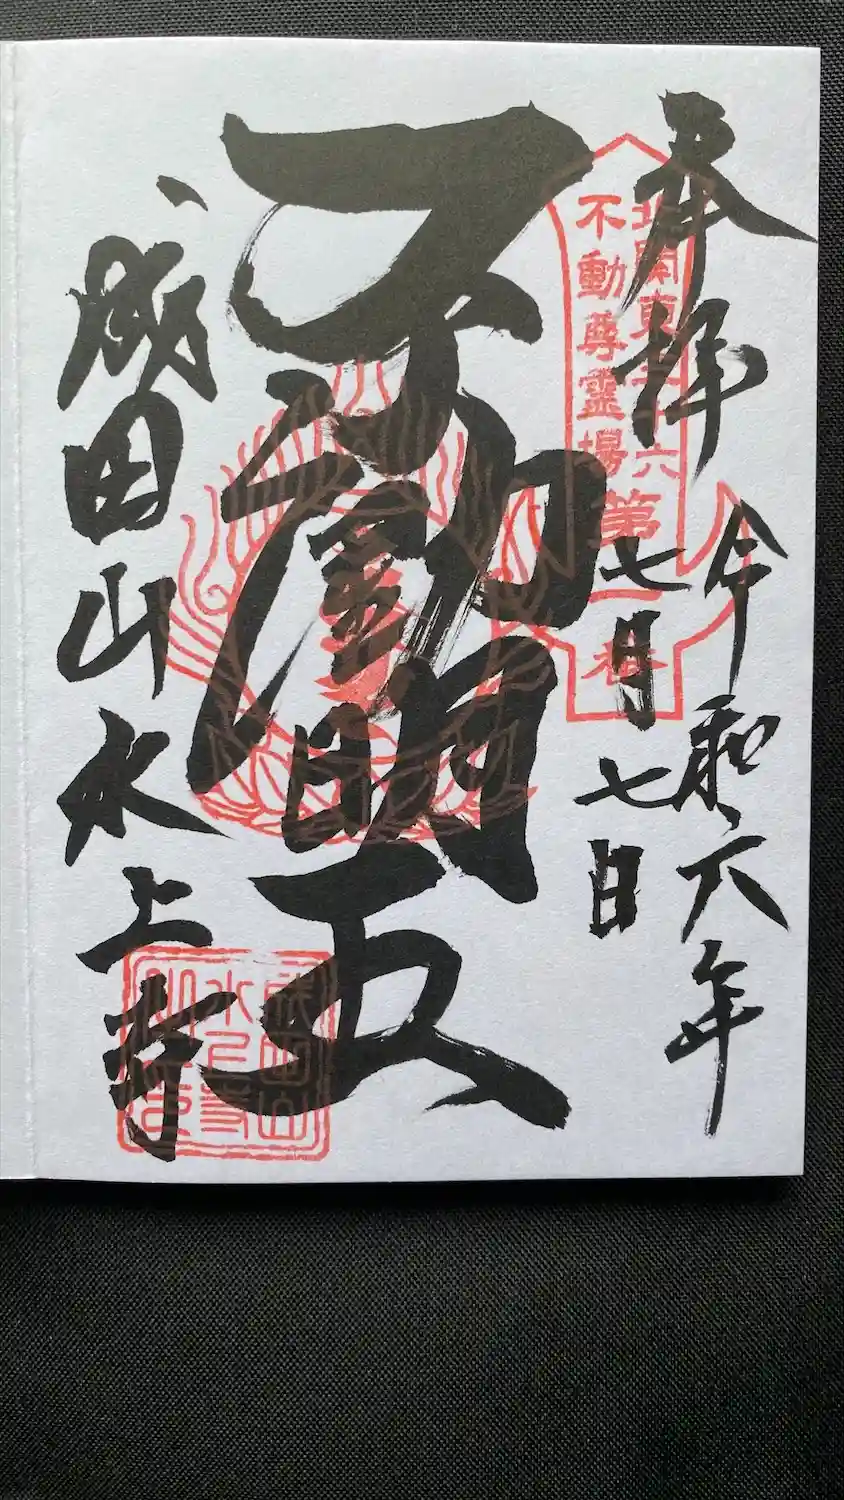 奉拝
令和六年
七月七日
北関東三十六
不動尊霊場
第一番
不動明王
成田山水上寺
成田山
水上寺